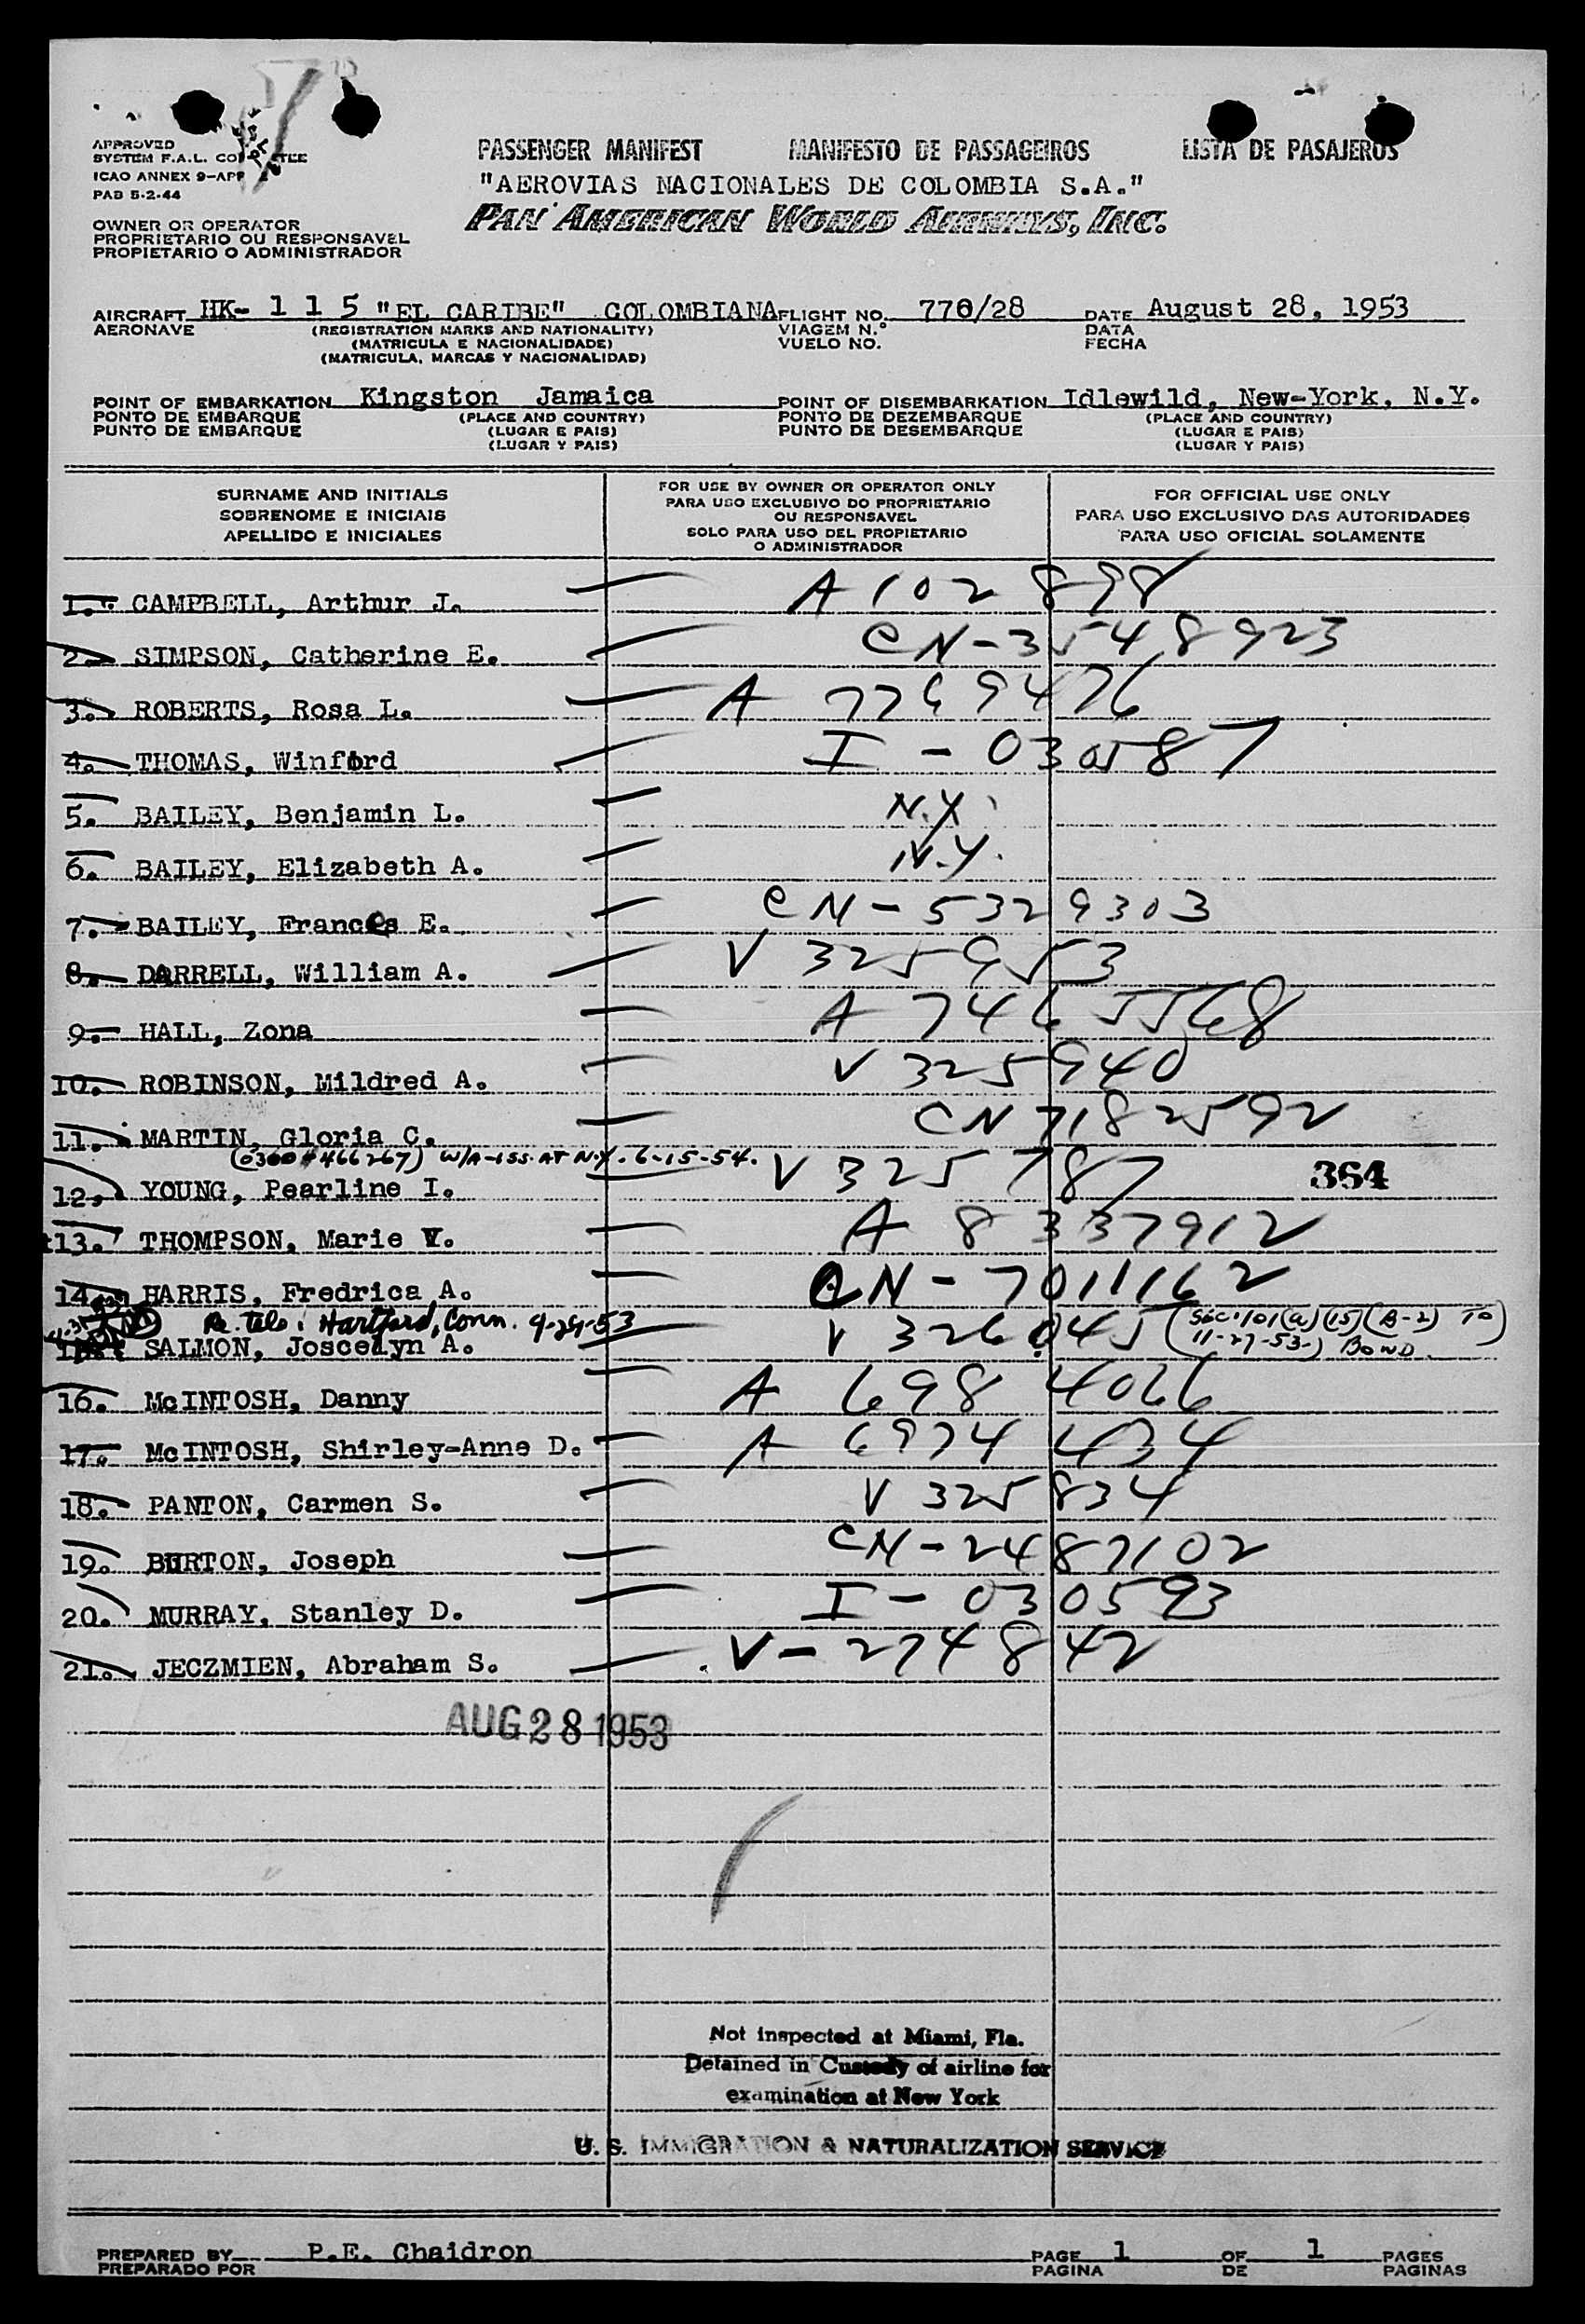 APPROVED
SYSTEM F.A.L.
ICAO ANNEX 9-APP
PAB 5-2-44
PASSENGER MANIFEST MANIFESTO DE PASSAGEIROS LISTA DE PASAJEROS
"AEROVIAS NACIONALES DE COLOMBIA S.A."
PAN AMERICAN WORLD AIRWAYS, INC.
OWNER OR OPERATOR
PROPRIETARIO OU RESPONSAVEL
PROPIETARIO O ADMINISTRADOR
AIRCRAFT HK- 1 1 5 "EL CARIBE" COLOMBIANA FLIGHT NO. 770/28 DATE August 28, 1953
AERONAVE (REGISTRATION MARKS AND NATIONALITY) VIAGEM N.º DATA
(MATRICULA E NACIONALIDADE) VUELO NO. FECHA
(MATRICULA, MARCAS Y NACIONALIDAD)
POINT OF EMBARKATION Kingston Jamaica POINT OF DISEMBARKATION Idlewild, New-York, N.Y.
PONTO DE EMBARQUE (PLACE AND COUNTRY) PONTO DE DEZEMBARQUE (PLACE AND COUNTRY)
PUNTO DE EMBARQUE (LUGAR E PAIS) PUNTO DE DESEMBARQUE (LUGAR E PAIS)
(LUGAR Y PAIS) (LUGAR Y PAIS)
SURNAME AND INITIALS
SOBRENOME E INICIAIS
APELLIDO E INICIALES
FOR USE BY OWNER OR OPERATOR ONLY
PARA USO EXCLUSIVO DO PROPRIETARIO
OU RESPONSAVEL
SOLO PARA USO DEL PROPIETARIO
O ADMINISTRADOR
FOR OFFICIAL USE ONLY
PARA USO EXCLUSIVO DAS AUTORIDADES
PARA USO OFICIAL SOLAMENTE
1. CAMPBELL, Arthur J. A 102 898
2. SIMPSON, Catherine E. CN-3548923
3. ROBERTS, Rosa L. A 7769476
4. THOMAS, Winford I - 030587
5. BAILEY, Benjamin L. N.Y.
6. BAILEY, Elizabeth A. N.Y.
7. BAILEY, Frances E. CN-5329303
8. DARRELL, William A. V 325953
9. HALL, Zona A 7465568
10. ROBINSON, Mildred A. V 325940
11. MARTIN, Gloria C. CN 7182592
(0300 # 466267) W/A-ISS. AT N.Y. 6-15-54.
12. YOUNG, Pearline I. V 325787 364
13. THOMPSON, Marie V. A 8337912
14. HARRIS, Fredrica A. CN-7011162
Re. Tele: Hartford, Conn. 9-29-53
SALMON, Joscelyn A. V 326045 (Sec. 101(a)(15)(B-2) TO
11-27-53.) BOND.
16. McINTOSH, Danny A 6984066
17. McINTOSH, Shirley-Anne D. A 6974434
18. PANTON, Carmen S. V 325834
19. BURTON, Joseph CN-2487102
20. MURRAY, Stanley D. I-030593
21. JECZMIEN, Abraham S. V-274842
AUG 28 1953
Not inspected at Miami, Fla.
Detained in Custody of airline for
examination at New York
U. S. IMMIGRATION & NATURALIZATION SERVICE
PREPARED BY P.E. Chaidron PAGE 1 OF 1 PAGES
PREPARADO POR PAGINA DE PAGINAS